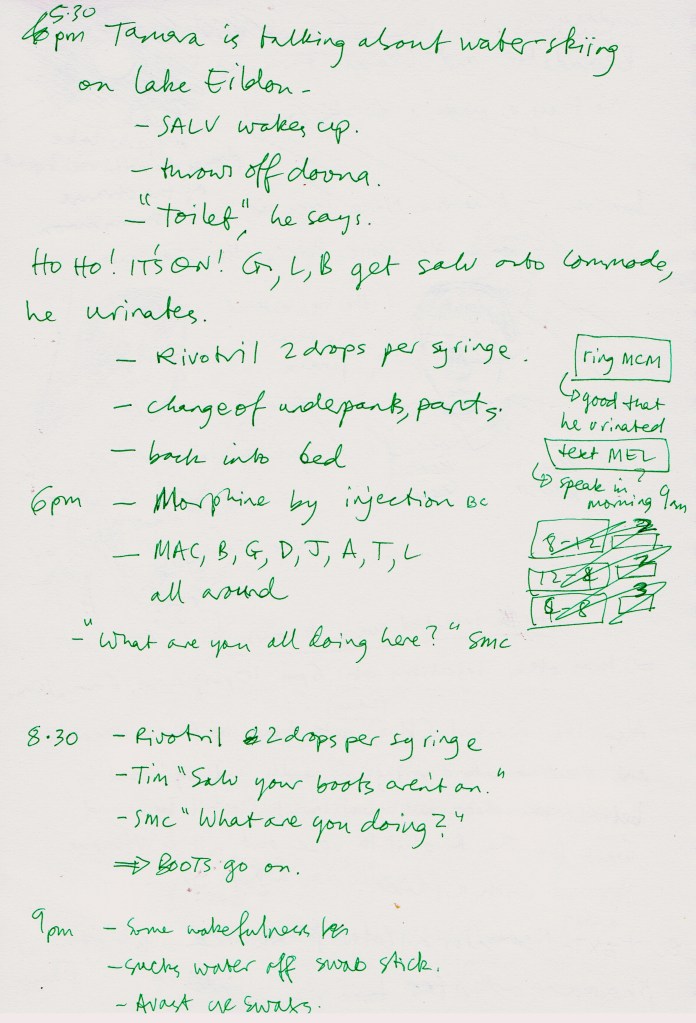 5.30
6pm Tamara is talking about water-skiing
on Lake Eildon -
- SALV wakes up.
- throws off doona.
- "Toilet", he says.
HO HO! IT'S ON! G, L, B get Salv onto commode,
he urinates.
- Rivotril 2 drops per syringe.
- change of underpants, pants.
- back into bed
ring MCM
good that
he urinated
text MEL
speak in?
morning 9am
6pm - Morphine by injection BC
- MAC, B, G, D, J, A, T, L
all around
8-12 2
12-4 2
4-8 3
- "What are you all doing here?" SMC
8.30 - Rivotril 2 drops per syringe
- Tim "Salv your boots aren't on."
- SMC "What are you doing?"
⇒ BOOTS go on.
9pm - Some wakefulness
- sucks water off swab stick.
- swabs.